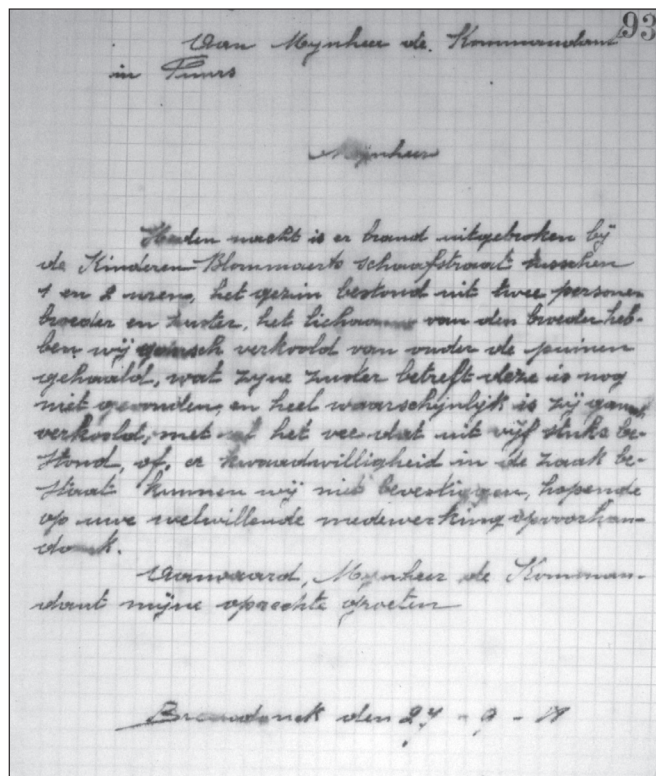 93
Aan Mynheer de Kommandant
in Puurs
Mynheer
Heden nacht is er brand uitgebroken bij
de Kinderen Blommaerts schaafstraat tusschen
1 en 2 uren, het gezin bestond uit twee personen
broeder en zuster, het lichaam van den broeder heb-
ben wij gansch verkoold van onder de puinen
gehaald, wat zyne zuster betreft deze is nog
niet gevonden, en heel waarschijnlijk is zij gansch
verkoold, met het vee dat uit vijf stuks be-
stond, of, er kwaadwilligheid in de zaak be-
staat kunnen wij niet bevestiggen, hopende
op uwe welwillende medewerking opvoorhan-
dank.
Aanvaard, Mynheer de Komman-
dant mijne oprechte groeten
Breendonck den 27 - 9 - 19